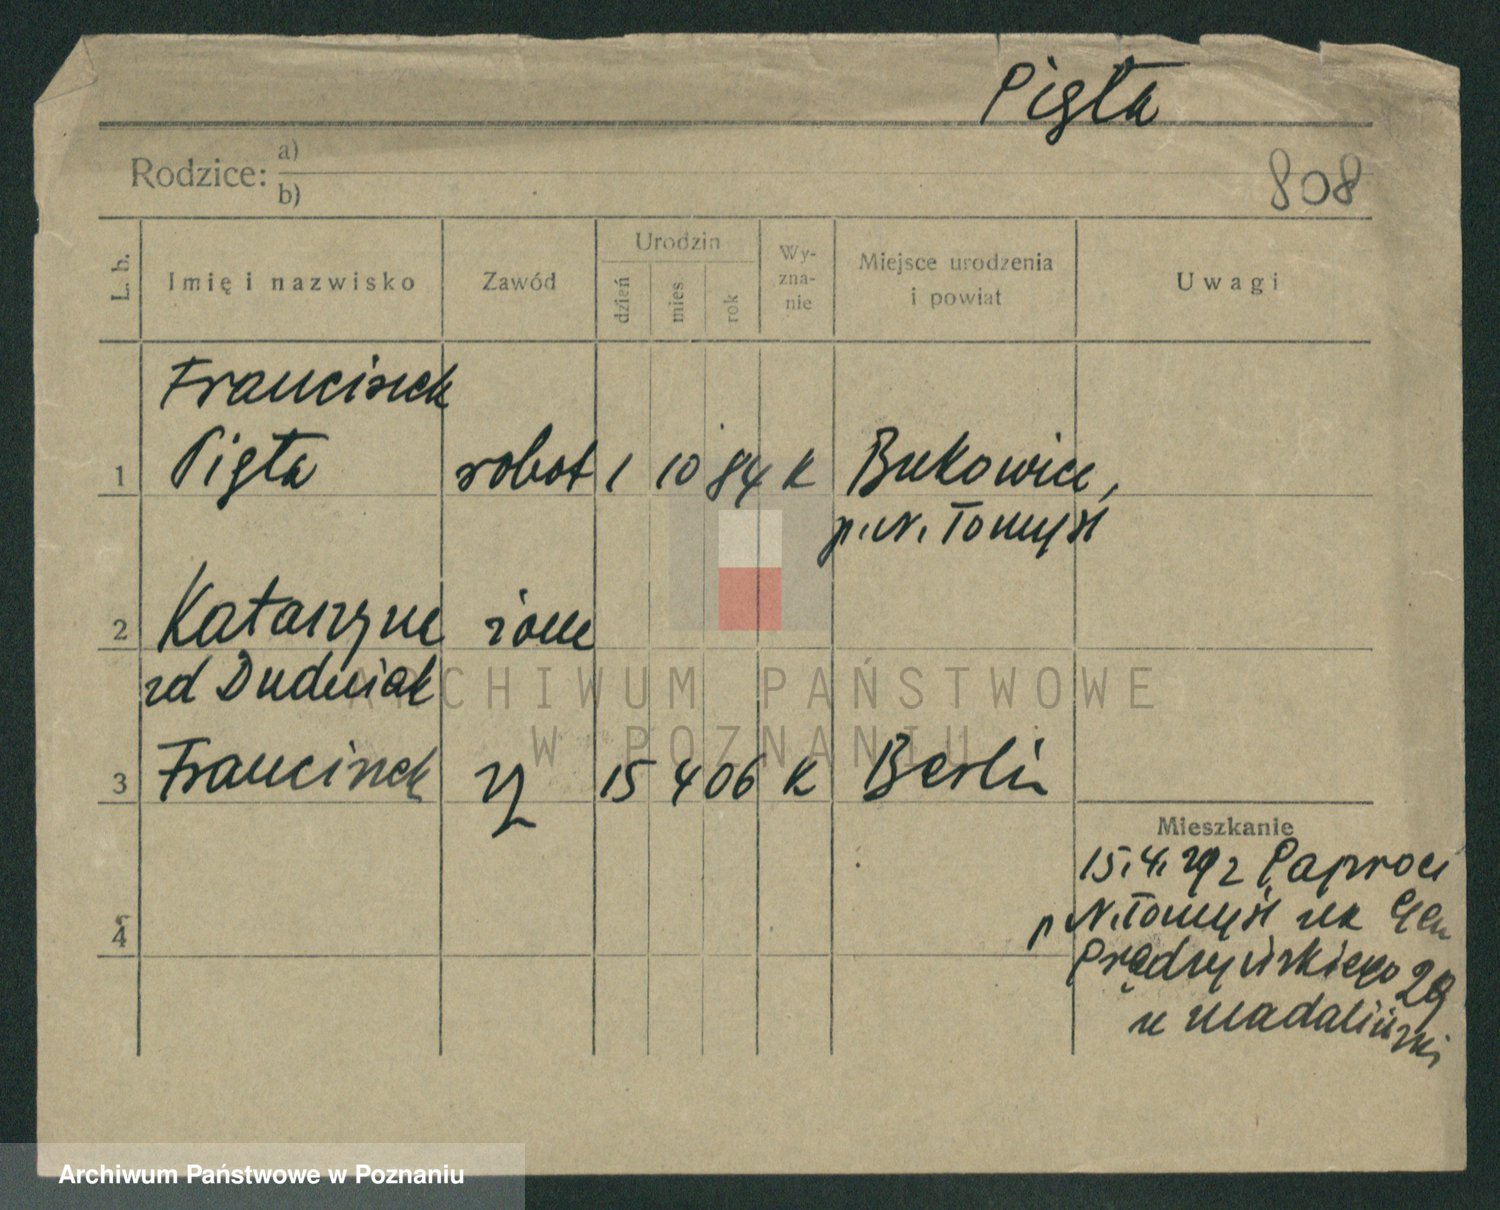 Pięta
Rodzice: a)
b)
808
L. b.
Imię i nazwisko
Zawód
Urodzin
dzień
mies
rok
Wy-
zna-
nie
Miejsce urodzenia
i powiat
Uwagi
Franciszek
1 Pięta robot 1 10 84 K Bukowiec,
p. N. Tomyśl
2 Katarzyna żona
zd Dudniak
3 Franciszek 15 4 06 K Berlin
4
Mieszkanie
15.4.29 z Paproci
p N. Tomyśl na Gen
Prądzyńskiego 29
u Madaliński
ARCHIWUM PAŃSTWOWE
W POZNANIU
Archiwum Państwowe w Poznaniu